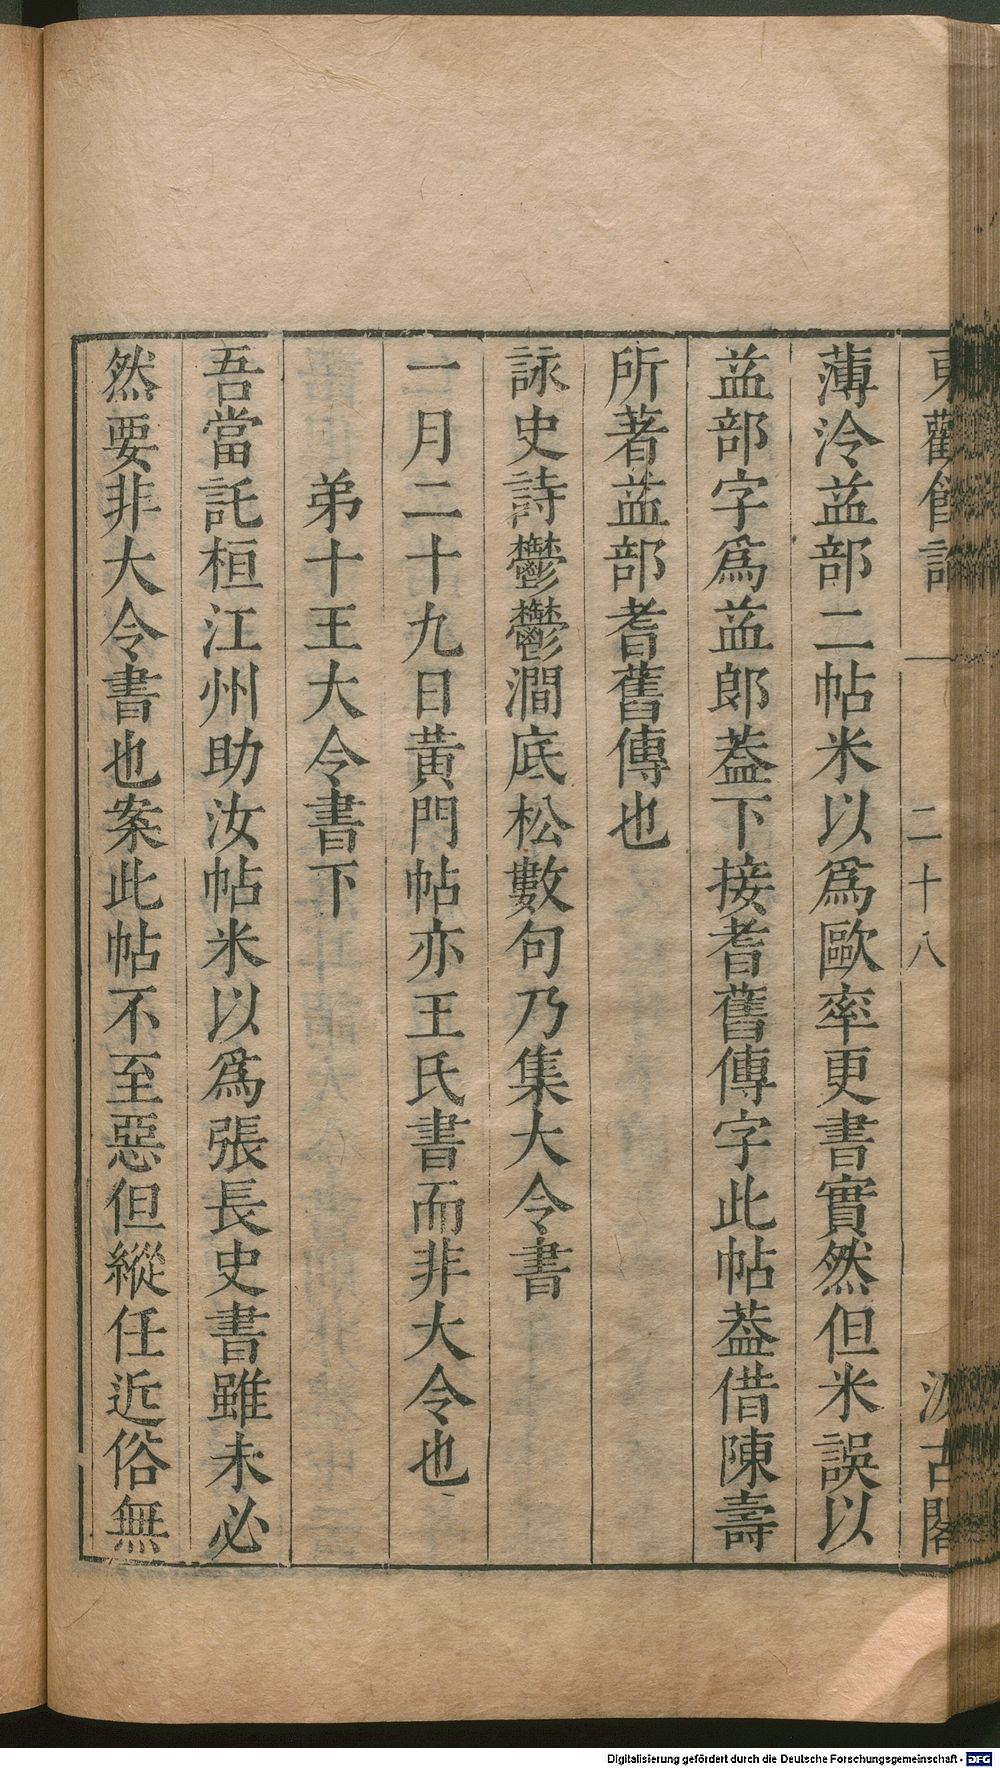 東觀餘論
二十八
汲古閣
薄冷益部二帖米以爲歐率更書實然但米誤以
益部字爲益郎葢下接耆舊傳字此帖葢借陳壽
所著益部耆舊傳也
詠史詩鬱鬱澗底松數句乃集大令書
一月二十九日黃門帖亦王氏書而非大令也
弟十王大令書下
吾當託桓江州助汝帖米以爲張長史書雖未必
然要非大令書也案此帖不至惡但縱任近俗無
Digitalisierung gefördert durch die Deutsche Forschungsgemeinschaft - DFG